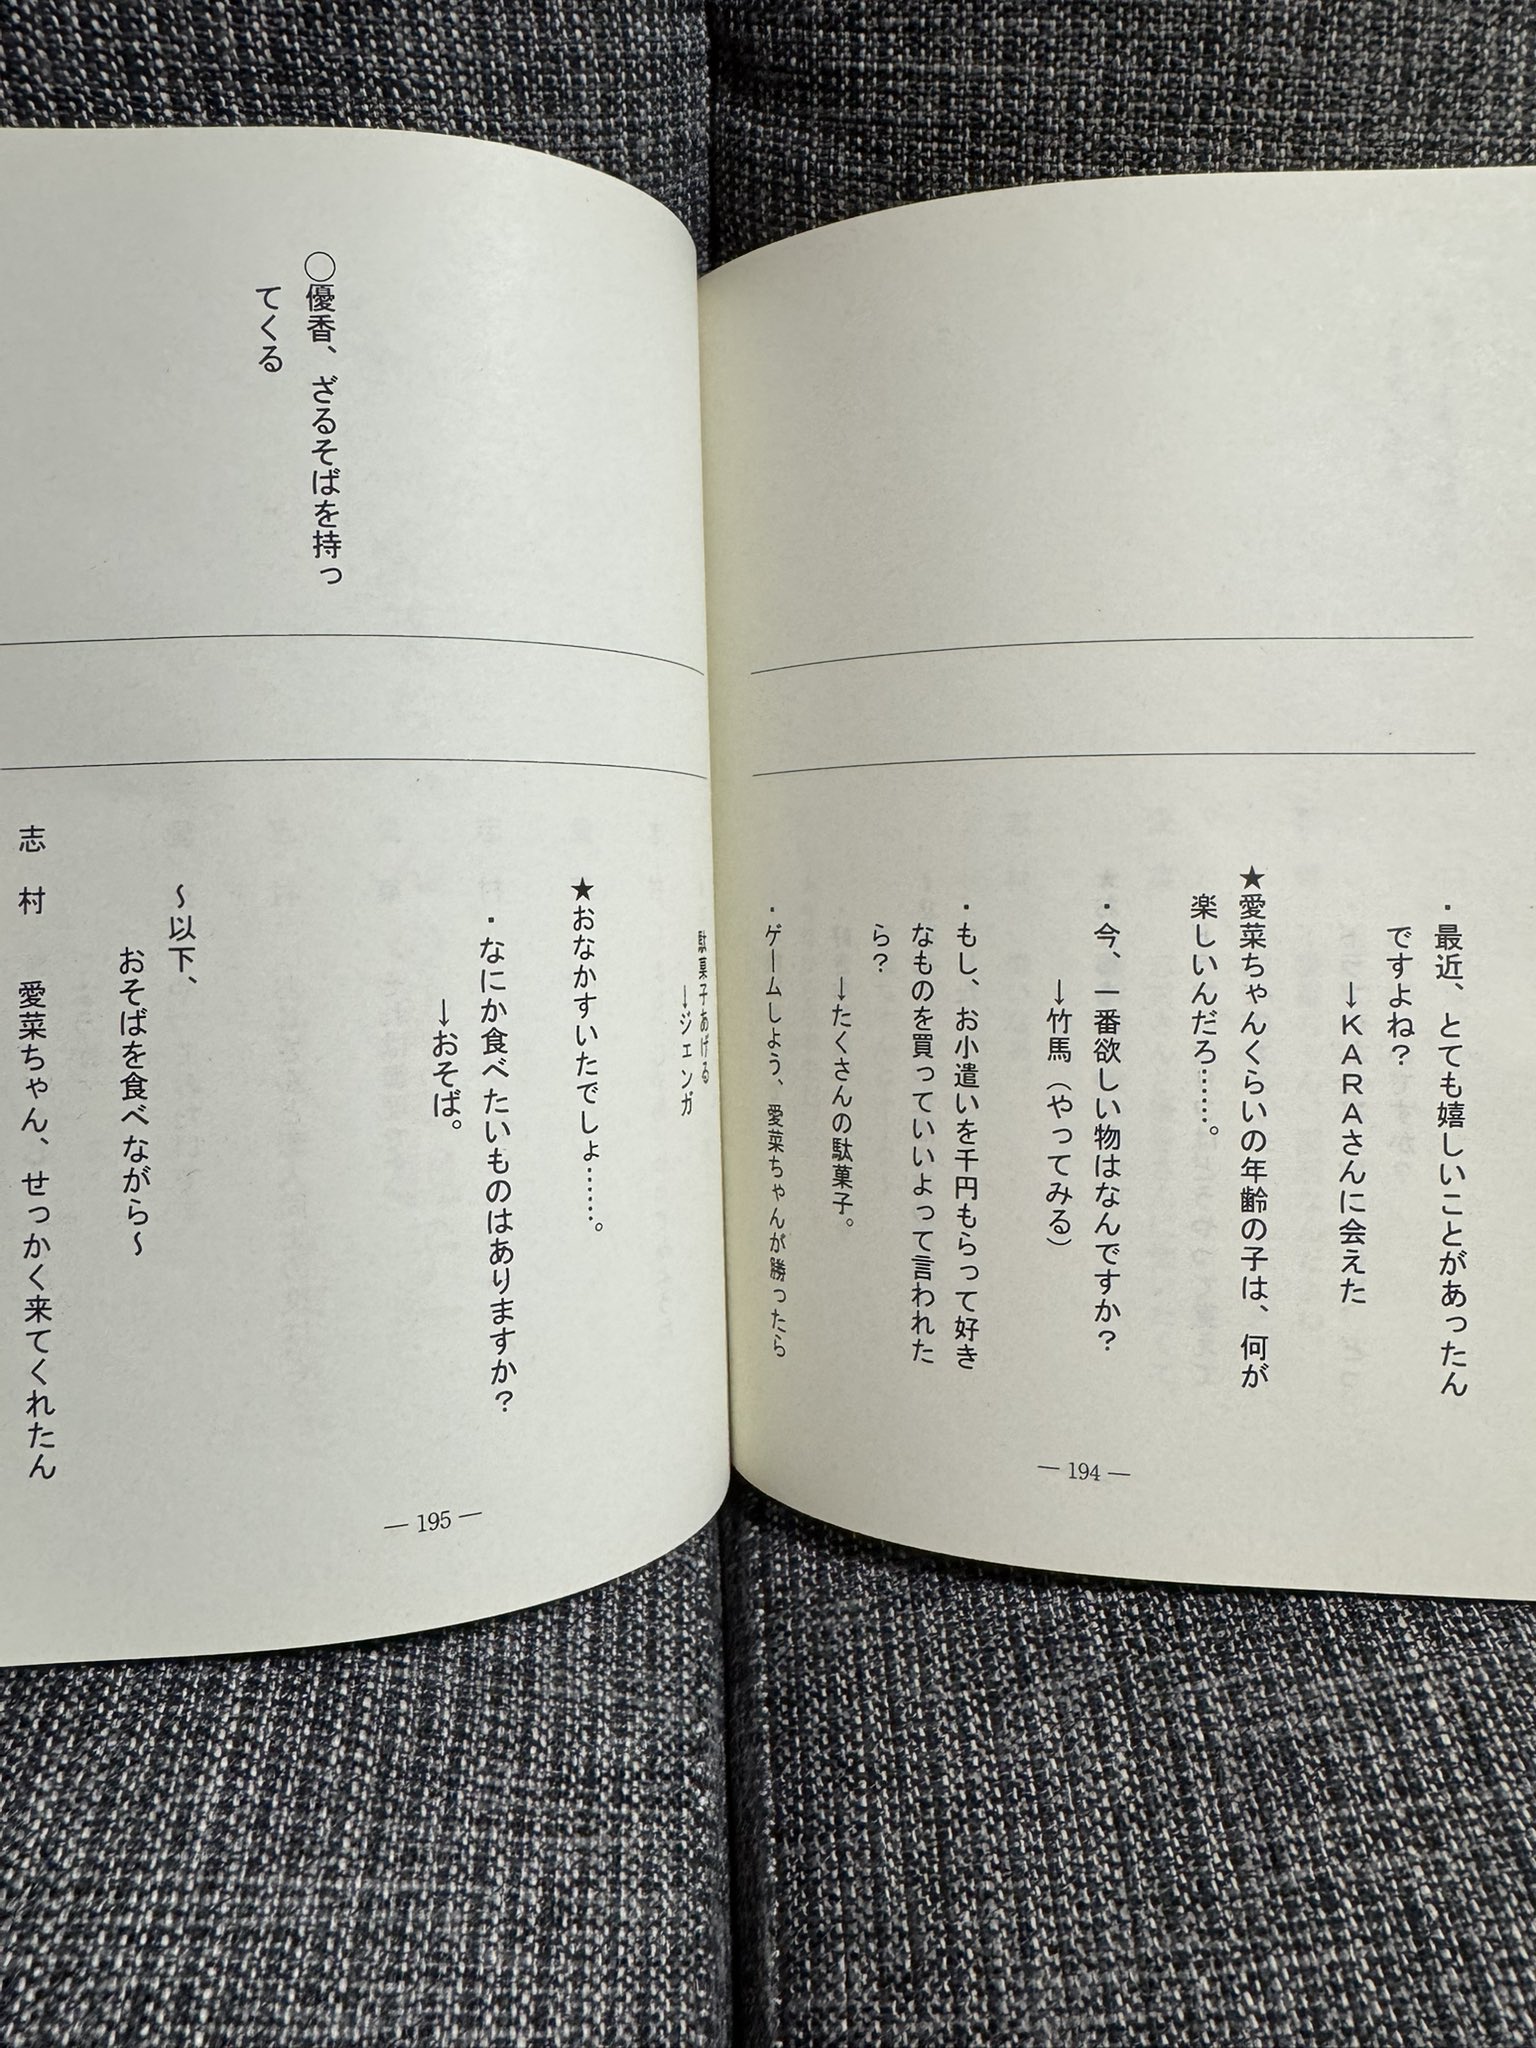 ・最近、とても嬉しいことがあったん
ですよね？
→ＫＡＲＡさんに会えた
★愛菜ちゃんくらいの年齢の子は、何が
楽しいんだろ……。
・今、一番欲しい物はなんですか？
→竹馬（やってみる）
・もし、お小遣いを千円もらって好き
なものを買っていいよって言われた
ら？
→たくさんの駄菓子。
・ゲームしよう、愛菜ちゃんが勝ったら
― 194 ―
駄菓子あげる
→ジェンガ
★おなかすいたでしょ……。
・なにか食べたいものはありますか？
→おそば。
○優香、ざるそばを持っ
てくる
～以下、
おそばを食べながら～
志　村　愛菜ちゃん、せっかく来てくれたん
― 195 ―